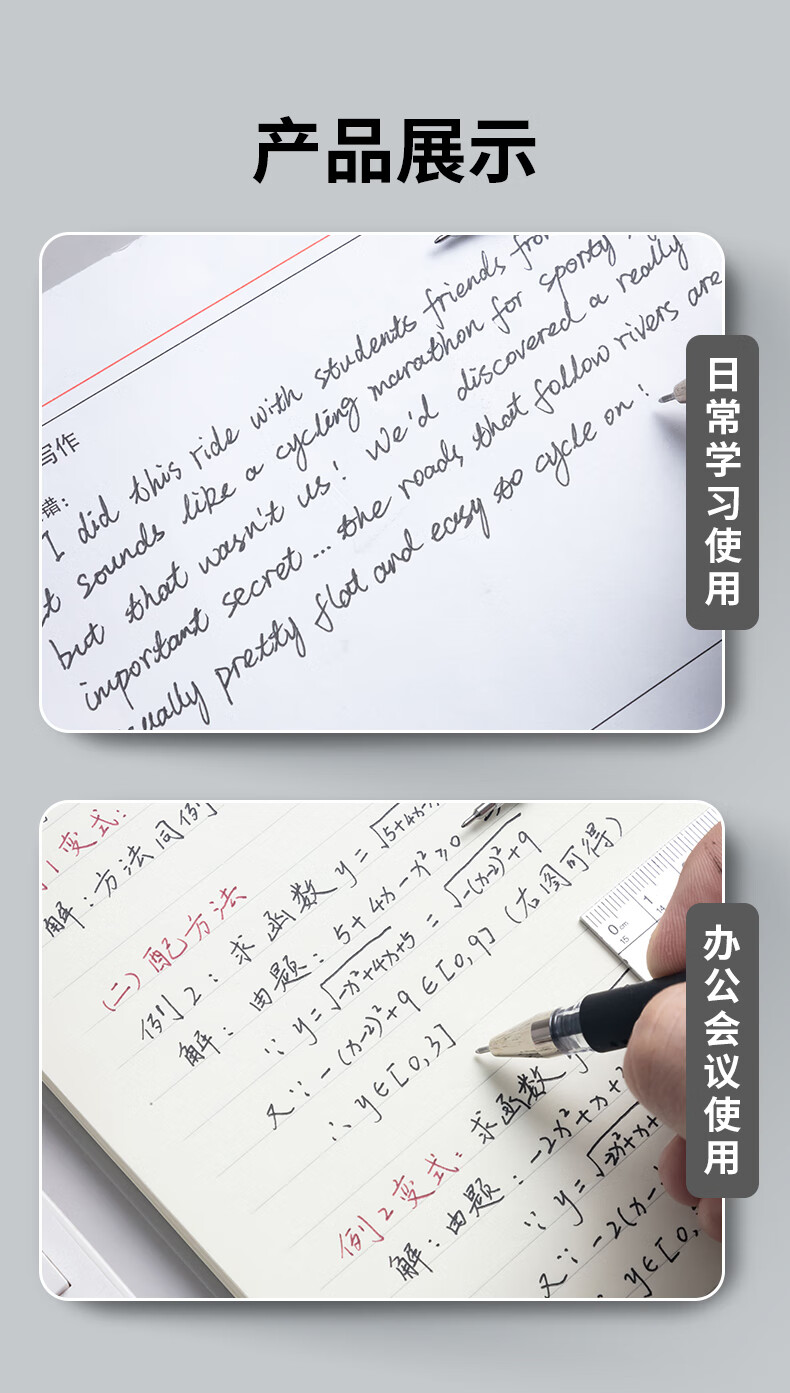 产品展示
I did this ride with students friends from
t sounds like a cycling marathon for sporty
but that wasn't us! We'd discovered a really
important secret... the roads that follow rivers are
ually pretty flat and easy to cycle on!
写作
错:
日常学习使用
1变式:
解:方法同例
(二)配方法
例2:求函数y=√5+4x-x
解:由题:5+4x-x²≥0
∵y=√-x²+4x+5=√-(x-2)²+9
又∵-(x-2)²+9∈[0,9](右图可得)
∴y∈[0,3]
例2变式:求函数y
解:由题:-2x²+x+
∵y=√2x²+x+
又∵-2(x-
y∈[0,
0cm 1
15 14
办公会议使用